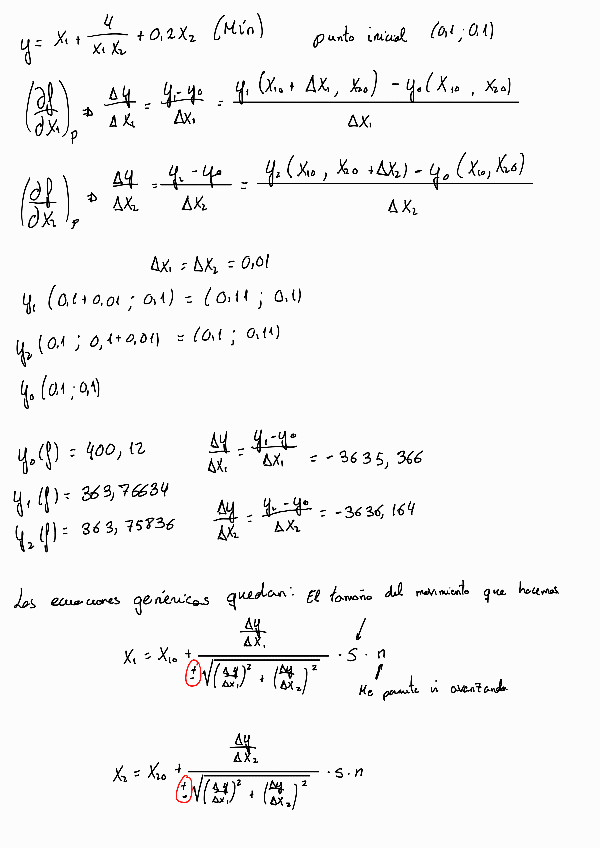 y = x₁ + 4/(x₁ x₂) + 0,2 x₂ (Mín) punto inicial (0,1 ; 0,1)
(∂f/∂x₁)ₚ ⇒ Δy/Δx₁ = (y₁ - y₀)/Δx₁ = (y₁ (x₁₀ + Δx₁, x₂₀) - y₀ (x₁₀, x₂₀))/Δx₁
(∂f/∂x₂)ₚ ⇒ Δy/Δx₂ = (y₂ - y₀)/Δx₂ = (y₂ (x₁₀, x₂₀ + Δx₂) - y₀ (x₁₀, x₂₀))/Δx₂
Δx₁ = Δx₂ = 0,01
y₁ (0,1 + 0,01 ; 0,1) = (0,11 ; 0,1)
y₂ (0,1 ; 0,1 + 0,01) = (0,1 ; 0,11)
y₀ (0,1 ; 0,1)
y₀(f) = 400,12 Δy/Δx₁ = (y₁ - y₀)/Δx₁ = -3635,366
y₁(f) = 363,76634
y₂(f) = 363,75836 Δy/Δx₂ = (y₂ - y₀)/Δx₂ = -3636,164
Las ecuaciones genéricas quedan: El tamaño del movimiento que hacemos
x₁ = x₁₀ + (Δy/Δx₁)/(±√((Δy/Δx₁)² + (Δy/Δx₂)²)) · S · n
Me permite ir avanzando
x₂ = x₂₀ + (Δy/Δx₂)/(±√((Δy/Δx₁)² + (Δy/Δx₂)²)) · s · n